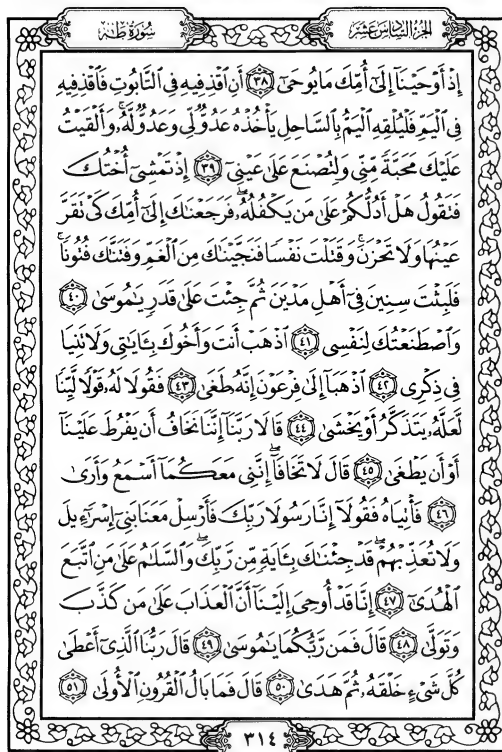 الجزء السادس عشر
سورة طه
إِذْ أَوْحَيْنَآ إِلَىٰٓ أُمِّكَ مَا يُوحَىٰٓ ﴿٣٨﴾ أَنِ ٱقْذِفِيهِ فِى ٱلتَّابُوتِ فَٱقْذِفِيهِ
فِى ٱلْيَمِّ فَلْيُلْقِهِ ٱلْيَمُّ بِٱلسَّاحِلِ يَأْخُذْهُ عَدُوٌّ لِّى وَعَدُوٌّ لَّهُۥ وَأَلْقَيْتُ
عَلَيْكَ مَحَبَّةً مِّنِّى وَلِتُصْنَعَ عَلَىٰ عَيْنِىٓ ﴿٣٩﴾ إِذْ تَمْشِىٓ أُخْتُكَ
فَتَقُولُ هَلْ أَدُلُّكُمْ عَلَىٰ مَن يَكْفُلُهُۥ فَرَجَعْنَٰكَ إِلَىٰٓ أُمِّكَ كَىْ تَقَرَّ
عَيْنُهَا وَلَا تَحْزَنَ وَقَتَلْتَ نَفْسًا فَنَجَّيْنَٰكَ مِنَ ٱلْغَمِّ وَفَتَنَّٰكَ فُتُونًا
فَلَبِثْتَ سِنِينَ فِىٓ أَهْلِ مَدْيَنَ ثُمَّ جِئْتَ عَلَىٰ قَدَرٍ يَٰمُوسَىٰ ﴿٤٠﴾
وَٱصْطَنَعْتُكَ لِنَفْسِى ﴿٤١﴾ ٱذْهَبْ أَنتَ وَأَخُوكَ بِـَٔايَٰتِى وَلَا تَنِيَا
فِى ذِكْرِى ﴿٤٢﴾ ٱذْهَبَآ إِلَىٰ فِرْعَوْنَ إِنَّهُۥ طَغَىٰ ﴿٤٣﴾ فَقُولَا لَهُۥ قَوْلًا لَّيِّنًا
لَّعَلَّهُۥ يَتَذَكَّرُ أَوْ يَخْشَىٰ ﴿٤٤﴾ قَالَا رَبَّنَآ إِنَّنَا نَخَافُ أَن يَفْرُطَ عَلَيْنَآ
أَوْ أَن يَطْغَىٰ ﴿٤٥﴾ قَالَ لَا تَخَافَآ إِنَّنِى مَعَكُمَآ أَسْمَعُ وَأَرَىٰ
﴿٤٦﴾ فَأْتِيَاهُ فَقُولَآ إِنَّا رَسُولَا رَبِّكَ فَأَرْسِلْ مَعَنَا بَنِىٓ إِسْرَٰٓءِيلَ
وَلَا تُعَذِّبْهُمْ قَدْ جِئْنَٰكَ بِـَٔايَةٍ مِّن رَّبِّكَ وَٱلسَّلَٰمُ عَلَىٰ مَنِ ٱتَّبَعَ
ٱلْهُدَىٰٓ ﴿٤٧﴾ إِنَّا قَدْ أُوحِىَ إِلَيْنَآ أَنَّ ٱلْعَذَابَ عَلَىٰ مَن كَذَّبَ
وَتَوَلَّىٰ ﴿٤٨﴾ قَالَ فَمَن رَّبُّكُمَا يَٰمُوسَىٰ ﴿٤٩﴾ قَالَ رَبُّنَا ٱلَّذِىٓ أَعْطَىٰ
كُلَّ شَىْءٍ خَلْقَهُۥ ثُمَّ هَدَىٰ ﴿٥٠﴾ قَالَ فَمَا بَالُ ٱلْقُرُونِ ٱلْأُولَىٰ ﴿٥١﴾
٣١٤